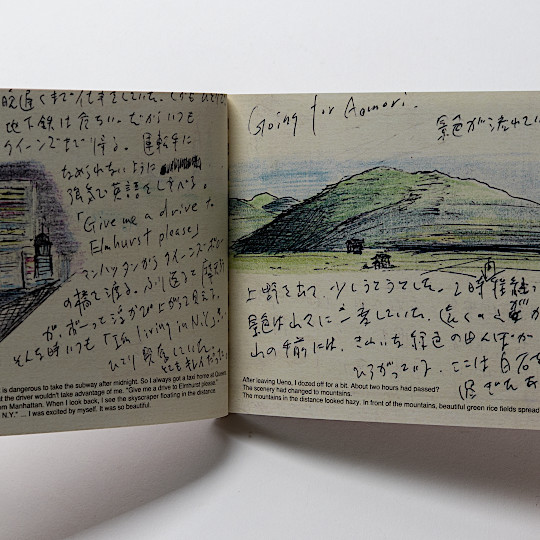 晩遅くまで仕事をしていた。しかもひとりで
地下鉄は危ない。だからいつも
クイーンズまで帰る。運転手に
なめられないように
強気で英語をしゃべる。
「Give me a drive to
Elmhurst please」
マンハッタンから クイーンズボロー
の橋を渡る。ふり返ると摩天
がボーッと浮かび上がって見える。
そんな時いつも「I'm living in N.Y.」と
ひとり興奮していた。
とてもキレイだった。
t is dangerous to take the subway after midnight. So I always got a taxi home at Queens
t the driver wouldn't take advantage of me. "Give me a drive to Elmhurst please."
m Manhattan. When I look back, I see the skyscraper floating in the distance.
N.Y." ... I was excited by myself. It was so beautiful.
Going for Aomori.
景色が流れてい
上野を出て、少しうとうとした。2時間程経
景色は山々に変していた。遠くの山が
山の前には、きれいな緑色の田んぼが
ひろがっている。ここは
After leaving Ueno, I dozed off for a bit. About two hours had passed?
The scenery had changed to mountains.
The mountains in the distance looked hazy. In front of the mountains, beautiful green rice fields spread